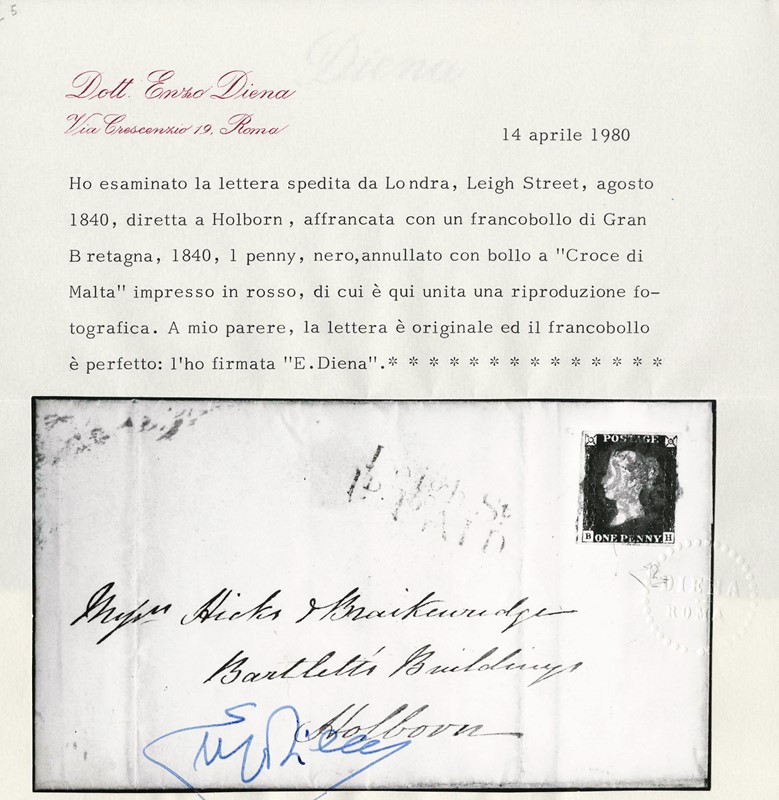 5
Diena
Dott. Enzo Diena
Via Crescenzio 19, Roma
14 aprile 1980
Ho esaminato la lettera spedita da Londra, Leigh Street, agosto
1840, diretta a Holborn, affrancata con un francobollo di Gran
Bretagna, 1840, 1 penny, nero, annullato con bollo a "Croce di
Malta" impresso in rosso, di cui è qui unita una riproduzione fo-
tografica. A mio parere, la lettera è originale ed il francobollo
è perfetto: l'ho firmata "E. Diena".* * * * * * * * * * * * * *
POSTAGE
B ONE PENNY H
Leigh St
PAID
DIENA
ROMA
Messrs Hicks & Braikenridge
Bartlett's Buildings
Holborn